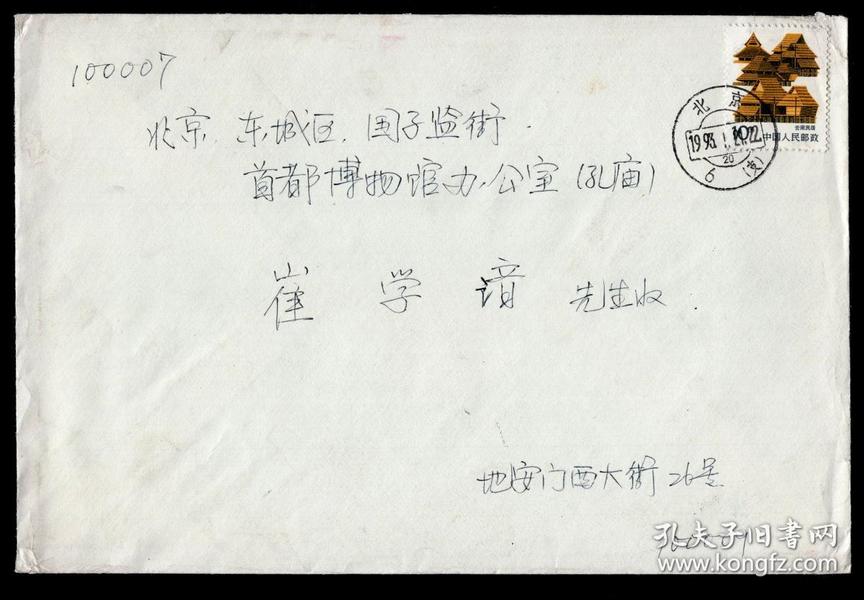 100007
北京 东城区 国子监街
首都博物馆办公室(孔庙)
崔 学 谙 先生收
地安门西大街26号
北京
1993.1.2
20
6 (支)
云南民居
中国人民邮政
孔夫子旧书网
www.kongfz.com